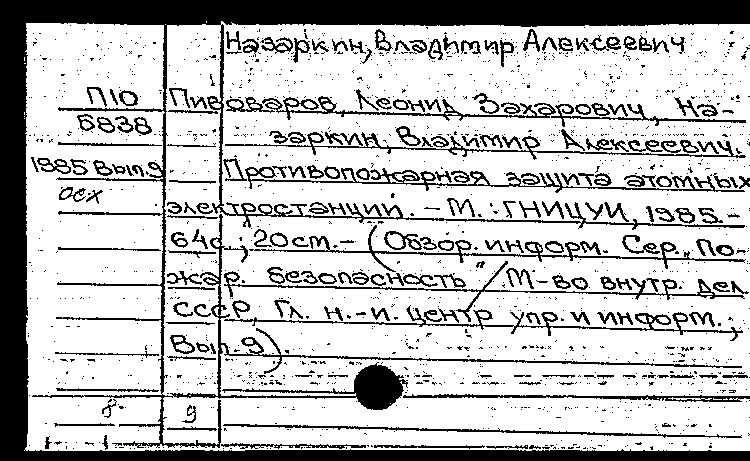 Назаркин, Владимир Алексеевич
П10 Пивоваров, Леонид Захарович, На-
5838 заркин, Владимир Алексеевич.
1985 Вып.9 Противопожарная защита атомных
осх электростанций. – М.: ГНИЦУИ, 1985. –
64с.; 20см. – (Обзор. информ. Сер. „По-
жар. безопасность" / М-во внутр. дел
СССР, Гл. н.-и. центр упр. и информ.;
Вып. 9).
8. 9